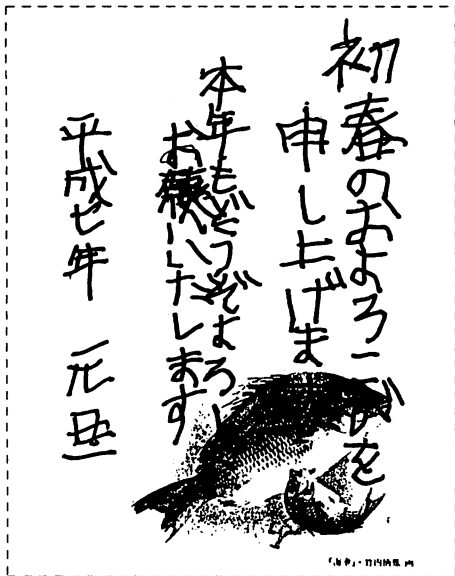 初春のおよろこびを
申し上げま
本年もどうぞよろし
お願いたします
平成七年 元旦